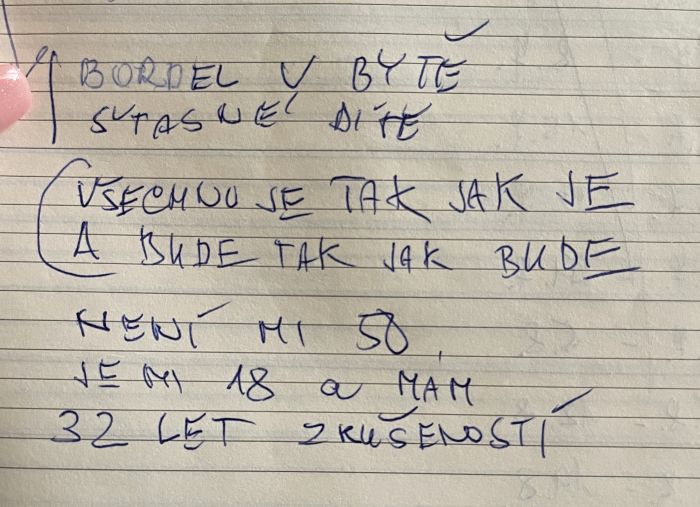 BORDEL V BYTĚ
ŠTASNÉ DÍTĚ
VŠECHNO JE TAK JAK JE
A BUDE TAK JAK BUDE
NENÍ MI 50,
JE MI 18 a MÁM
32 LET ZKUŠENOSTÍ